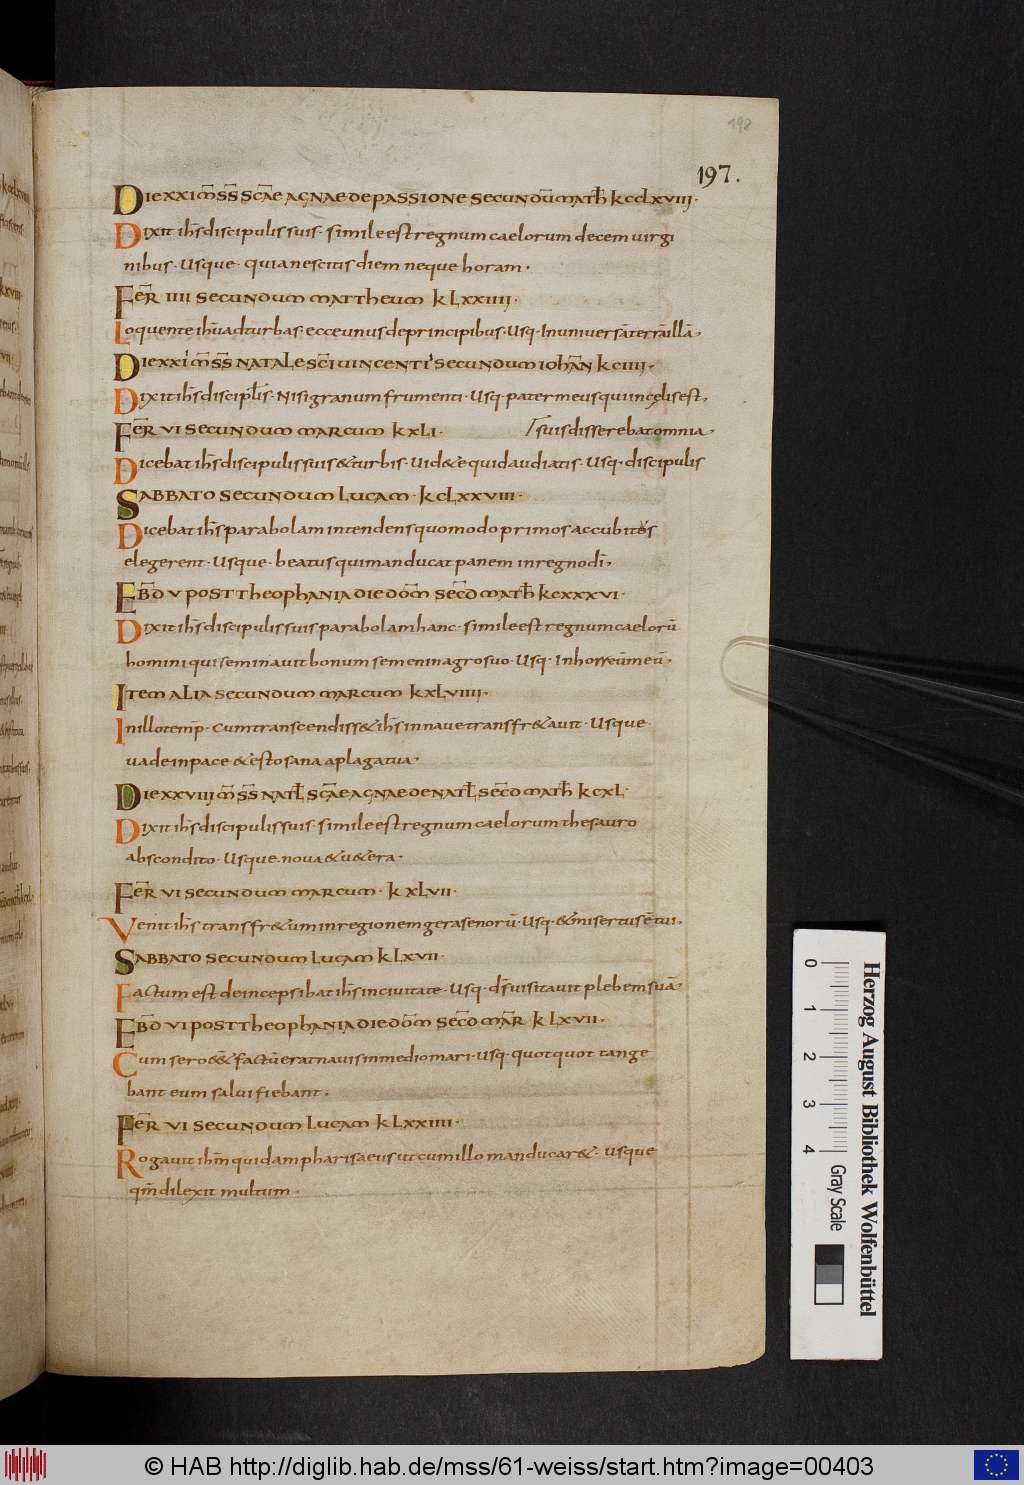 198
197.
DIE XXI M̄ S̄S̄ SC̄AE AGNAE DE PASSIONE SECUNDŪ MATH̄ K CCLXVIII·
Dixit ih̄s discipulis suis· simile est regnum caelorum decem uirgi
nibus· Usque· quia nescitis diem neque horam·
FER̄ IIII SECUNDUM MATTHEUM K LXXIIII·
Loquente ih̄u ad turbas· ecce unus de principibus· Usq· In uniuersā terrā illā·
DIE XXI M̄ S̄S̄ NATALE SC̄I UINCENTI SECUNDUM IOHAN̄ K CIIII·
Dixit ih̄s discipl̄is· Nisi granum frumenti· Usq· pater meus qui in cęlis est·
FER̄ VI SECUNDUM MARCUM K XLI· / suis disserebat omnia·
Dicebat ih̄s discipulis suis & turbis· Uid&e quid audiatis· Usq· discipulis
SABBATO SECUNDUM LUCAM· K CLXXVIII·
Dicebat ih̄s parabolam intendens quomodo primos accubitos
elegerent· Usque· beatus qui manducat panem in regno dī·
EBD̄ V POST THEOPHANIA DIE DOM̄ SECD̄ MATH̄ K CXXXVI·
Dixit ih̄s discipulis suis parabolam hanc· simile est regnum caelorū
homini qui seminauit bonum semen in agro suo· Usq· In horreū meū·
ITEM ALIA SECUNDUM MARCUM K XLVIIII·
In illo temp̄· Cum transcendiss& ih̄s in naue transfr&auit· Usque
uade in pace & esto sana a plaga tua·
DIE XXVIII M̄ S̄S̄ NATL̄ SC̄AE AGNAE DE NATL̄ SECD̄ MATH̄ K CXL·
Dixit ih̄s discipulis suis· simile est regnum caelorum thesauro
abscondito· Usque· noua & u&era·
FER̄ VI SECUNDUM MARCUM· K XLVII·
Venit ih̄s transfr&um in regionem gerasenorū· Usq· & misertus ē tui·
SABBATO SECUNDUM LUCAM K LXVII·
Factum est deinceps ibat ih̄s in ciuitate· Usq· ds̄ uisitauit plebem suā·
EBD̄ VI POST THEOPHANIA DIE DOM̄ SECD̄ MAR̄ K LXVII·
Cum sero ēe& factū erat nauis in medio mari· Usq· quotquot tange
bant eum salui fiebant·
FER̄ VI SECUNDUM LUCAM K LXXIIII·
Rogauit ihm̄ quidam pharisaeus ut cum illo manducar&· usque
qm̄ dilexit multum·
0 1 2 3 4
Gray Scale
Herzog August Bibliothek Wolfenbüttel
© HAB http://diglib.hab.de/mss/61-weiss/start.htm?image=00403